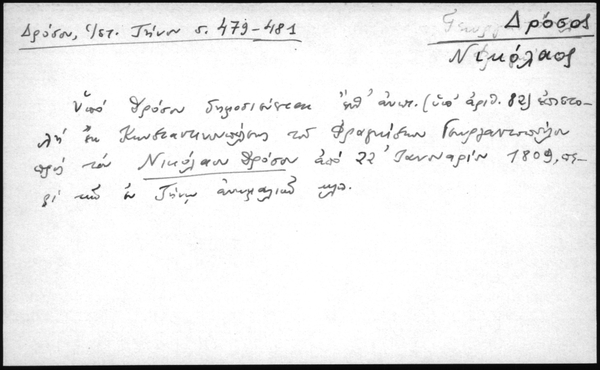 Δρόσου, Ἱστ. Τήνου σ. 479-481
Δρόσος
Νικόλαος
Ὑπὸ Δρόσου δημοσιεύεται ἔνθ' ἀνωτ. (ὑπ' ἀριθ. 82) ἐπιστο-
λὴ ἐκ Κωνσταντινουπόλεως τοῦ Φραγκίσκου Γεωργαντοπούλου
πρὸς τὸν Νικόλαον Δρόσον ἀπὸ 22 Ἰανουαρίου 1809, πε-
ρὶ τοῦ ἐν Τήνῳ κλπ.